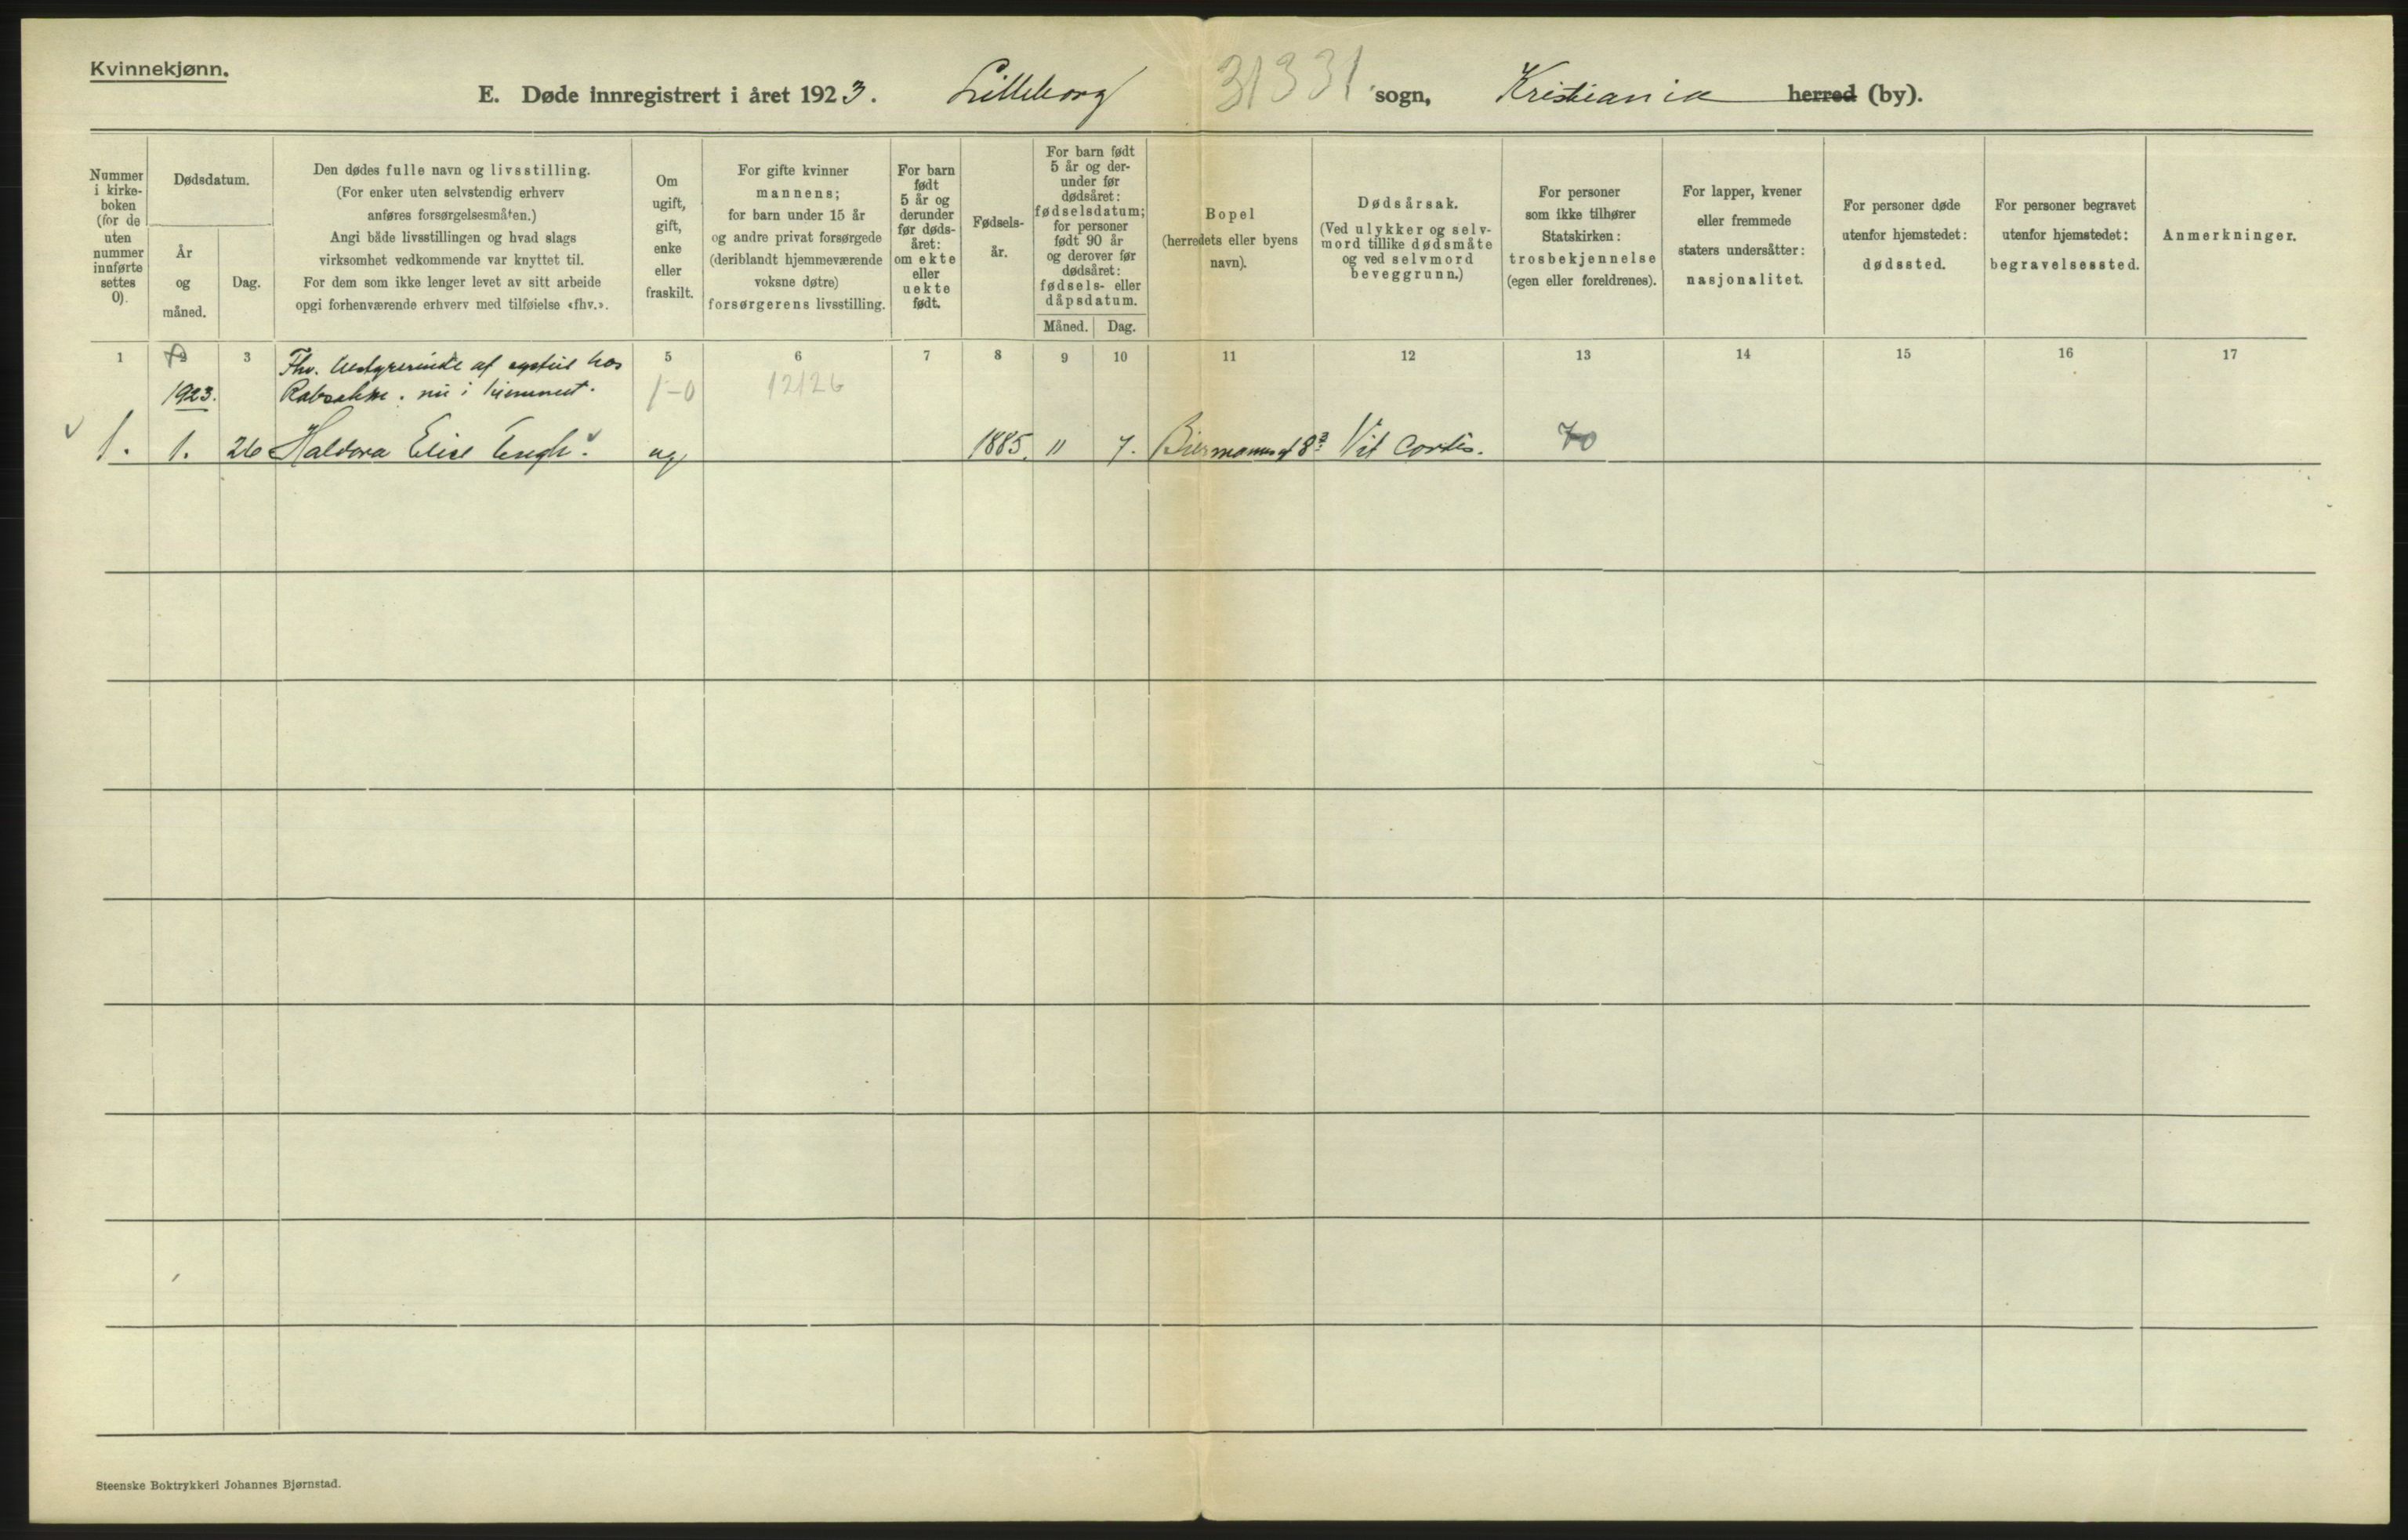 Kvinnekjønn.
E. Døde innregistrert i året 1923. Lilleborg 31331 sogn, Kristiania herred (by).
Nummer
i kirke-
boken
(for de
uten
nummer
innførte
settes
0).
Dødsdatum.
År
og
måned.
Dag.
Den dødes fulle navn og livsstilling.
(For enker uten selvstendig erhverv
anføres forsørgelsesmåten.)
Angi både livsstillingen og hvad slags
virksomhet vedkommende var knyttet til.
For dem som ikke lenger levet av sitt arbeide
opgi forhenværende erhverv med tilføielse «fhv.».
Om
ugift,
gift,
enke
eller
fraskilt.
For gifte kvinner
mannens;
for barn under 15 år
og andre privat forsørgede
(deriblandt hjemmeværende
voksne døtre)
forsørgerens livsstilling.
For barn
født
5 år og
derunder
før døds-
året:
om ekte
eller
uekte
født.
Fødsels-
år.
For barn født
5 år og der-
under før
dødsåret:
fødselsdatum;
for personer
født 90 år
og derover før
dødsåret:
fødsels- eller
dåpsdatum.
Måned. Dag.
Bopel
(herredets eller byens
navn).
Dødsårsak.
(Ved ulykker og selv-
mord tillike dødsmåte
og ved selvmord
beveggrunn.)
For personer
som ikke tilhører
Statskirken:
trosbekjennelse
(egen eller foreldrenes).
For lapper, kvener
eller fremmede
staters undersåtter:
nasjonalitet.
For personer døde
utenfor hjemstedet:
dødssted.
For personer begravet
utenfor hjemstedet:
begravelsessted.
Anmerkninger.
1 3 5 6 7 8 9 10 11 12 13 14 15 16 17
Fhv. bestyrerinde af hos
1923. nu i hjemmet. 1-0 12126
1. 1. 26 Haldora Elise Engh ug 1885. 11 7. Biermannsgt 8 Vit Cordis. 70
Steenske Boktrykkeri Johannes Bjørnstad.